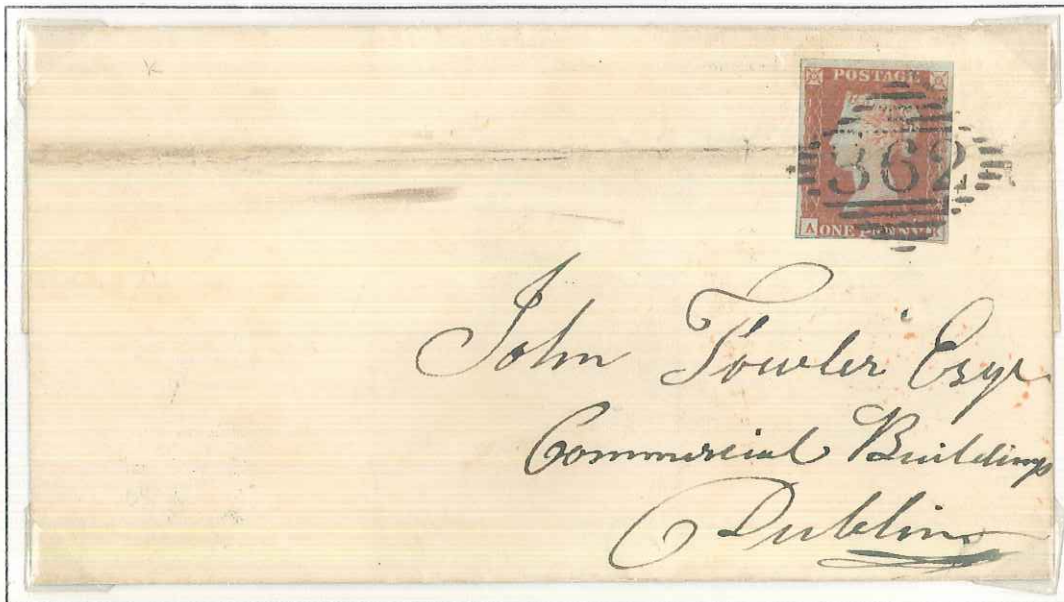 POSTAGE
362
A ONE PENNY
John Fowler Esqr
Commercial Buildings
Dublin